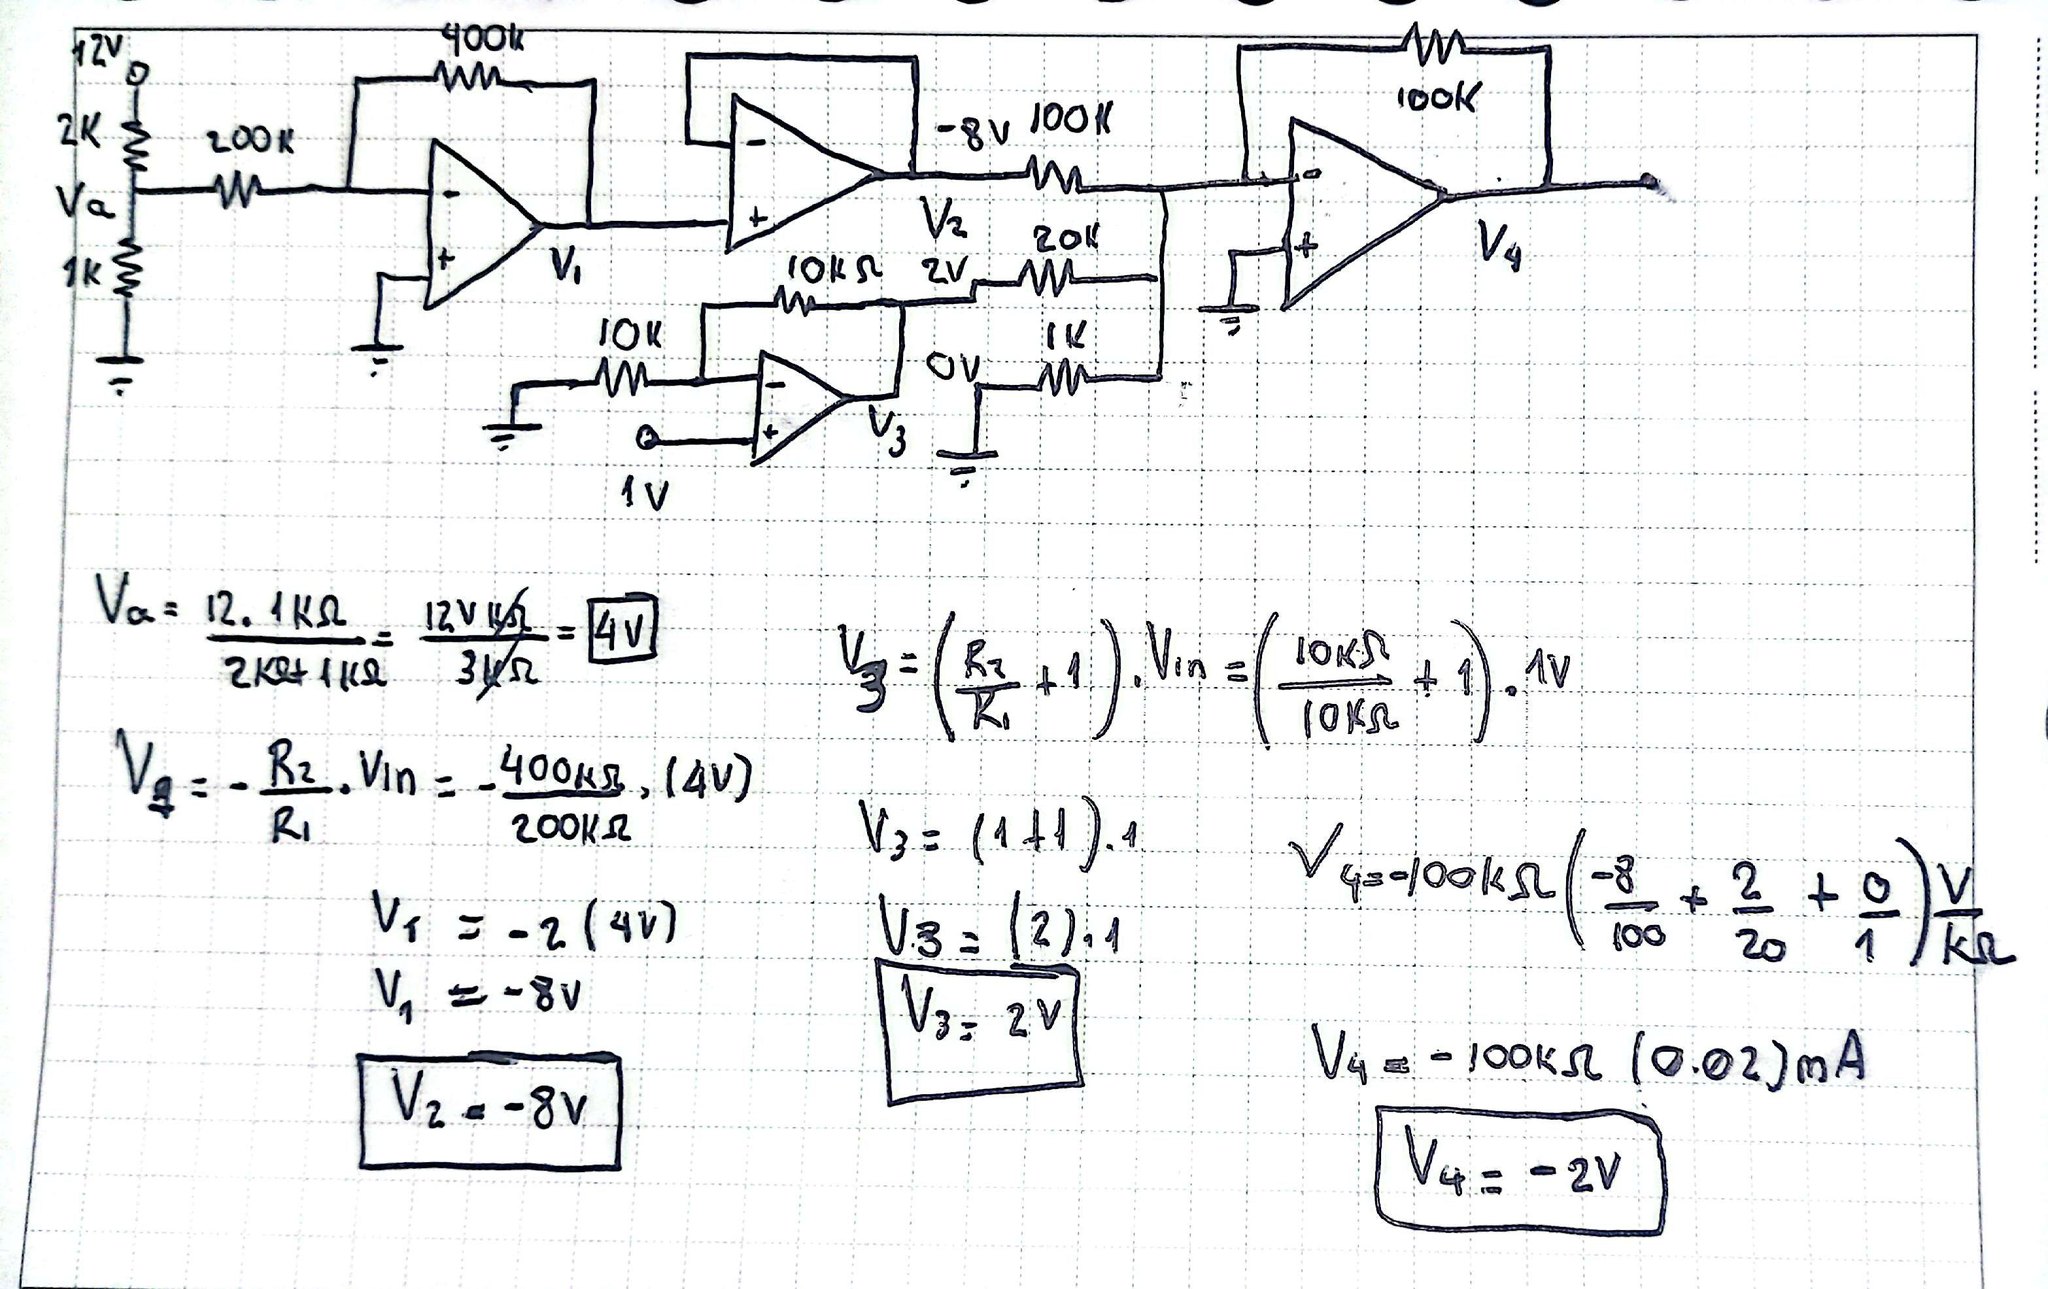 12V
400K
2K
200K
Va
1K
-
+
V₁
-
+
-8V
100K
V₂
10KΩ
2V
20K
10K
0V
1K
-
+
V₃
1V
100K
-
+
V₄
Va = 12 . 1KΩ / 2KΩ+1KΩ = 12V KΩ / 3KΩ = 4V
V₁ = - R₂ / R₁ . Vin = - 400KΩ / 200KΩ . (4V)
V₁ = -2 (4V)
V₁ = -8V
V₂ = -8V
V₃ = (R₂ / R₁ + 1) . Vin = (10KΩ / 10KΩ + 1) . 1V
V₃ = (1+1) . 1
V₃ = (2) . 1
V₃ = 2V
V₄ = -100KΩ (-8 / 100 + 2 / 20 + 0 / 1) V / KΩ
V₄ = -100KΩ (0.02) mA
V₄ = -2V